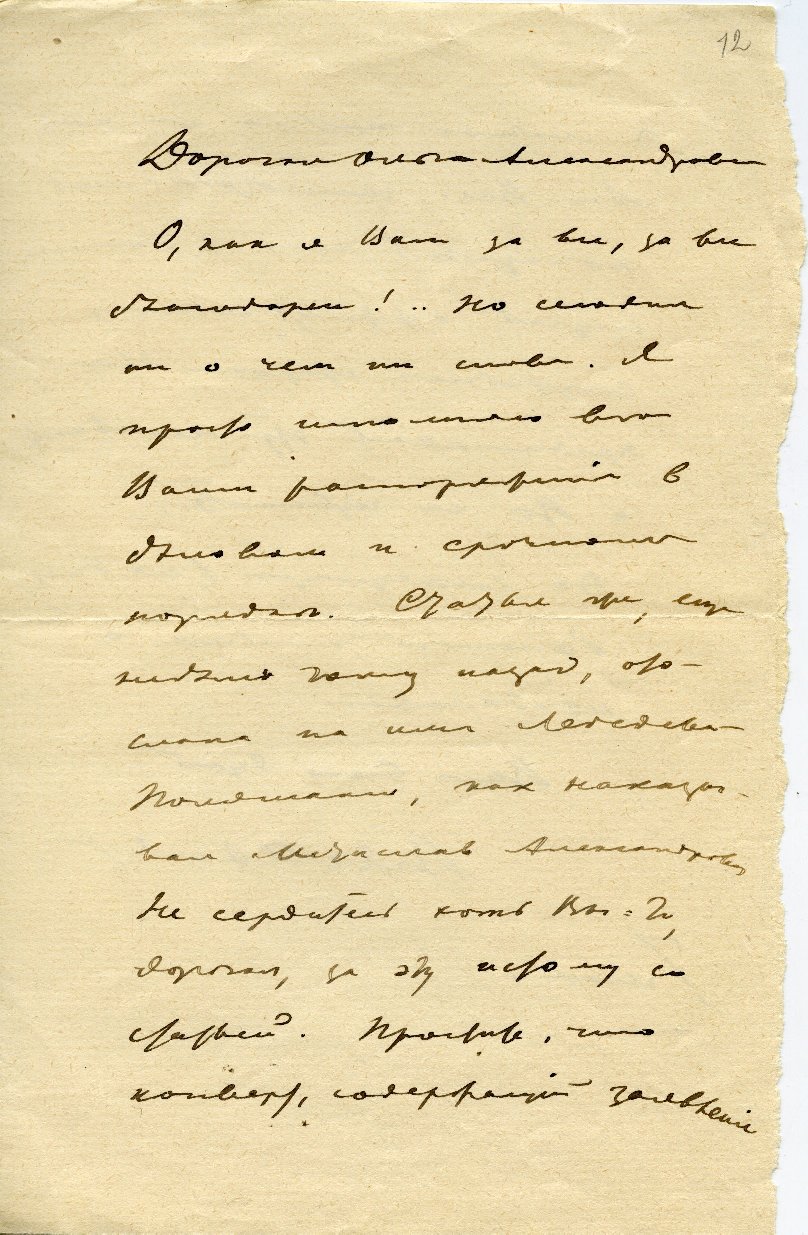 12
Дорогая Ольга Александровна
О, как я Вам за вы, за вы
благодарен!.. Но сегодня
ни о чем ни слова. Я
просто исполняю
Ваши распоряжения в
деловом и срочном
порядке. Статья же, еще
неделю тому назад, ото-
слана на имя Лебедева-
Полянского, как наказы-
вал Мечислав Александрович
Не сердитесь хоть Вы-то,
дорогая, за эту историю со
статьей. Простите, что
конверт, содержащий заявления